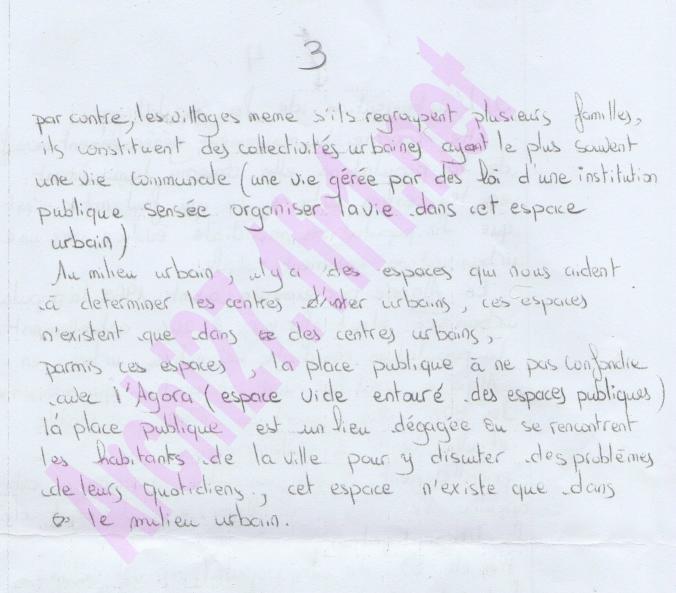 3
par contre, les villages meme s'ils regroupent plusieurs familles,
ils constituent des collectivités urbaines ayant le plus souvent
une vie communale (une vie gérée par des loi d'une institution
publique sensée organiser la vie dans cet espace
urbain)
Au milieu urbain, il y a des espaces qui nous aident
à determiner les centres d'inter urbains, ces espaces
n'existent que dans des centres urbains,
parmis ces espaces, la place publique à ne pas confondre
avec l'Agora (espace vide entouré des espaces publiques)
là place publique est un lieu dégagée ou se rencontrent
les habitants de la ville pour y discuter des problèmes
de leurs quotidiens, cet espace n'existe que dans
le milieu urbain.
Archi27.1fr1.net